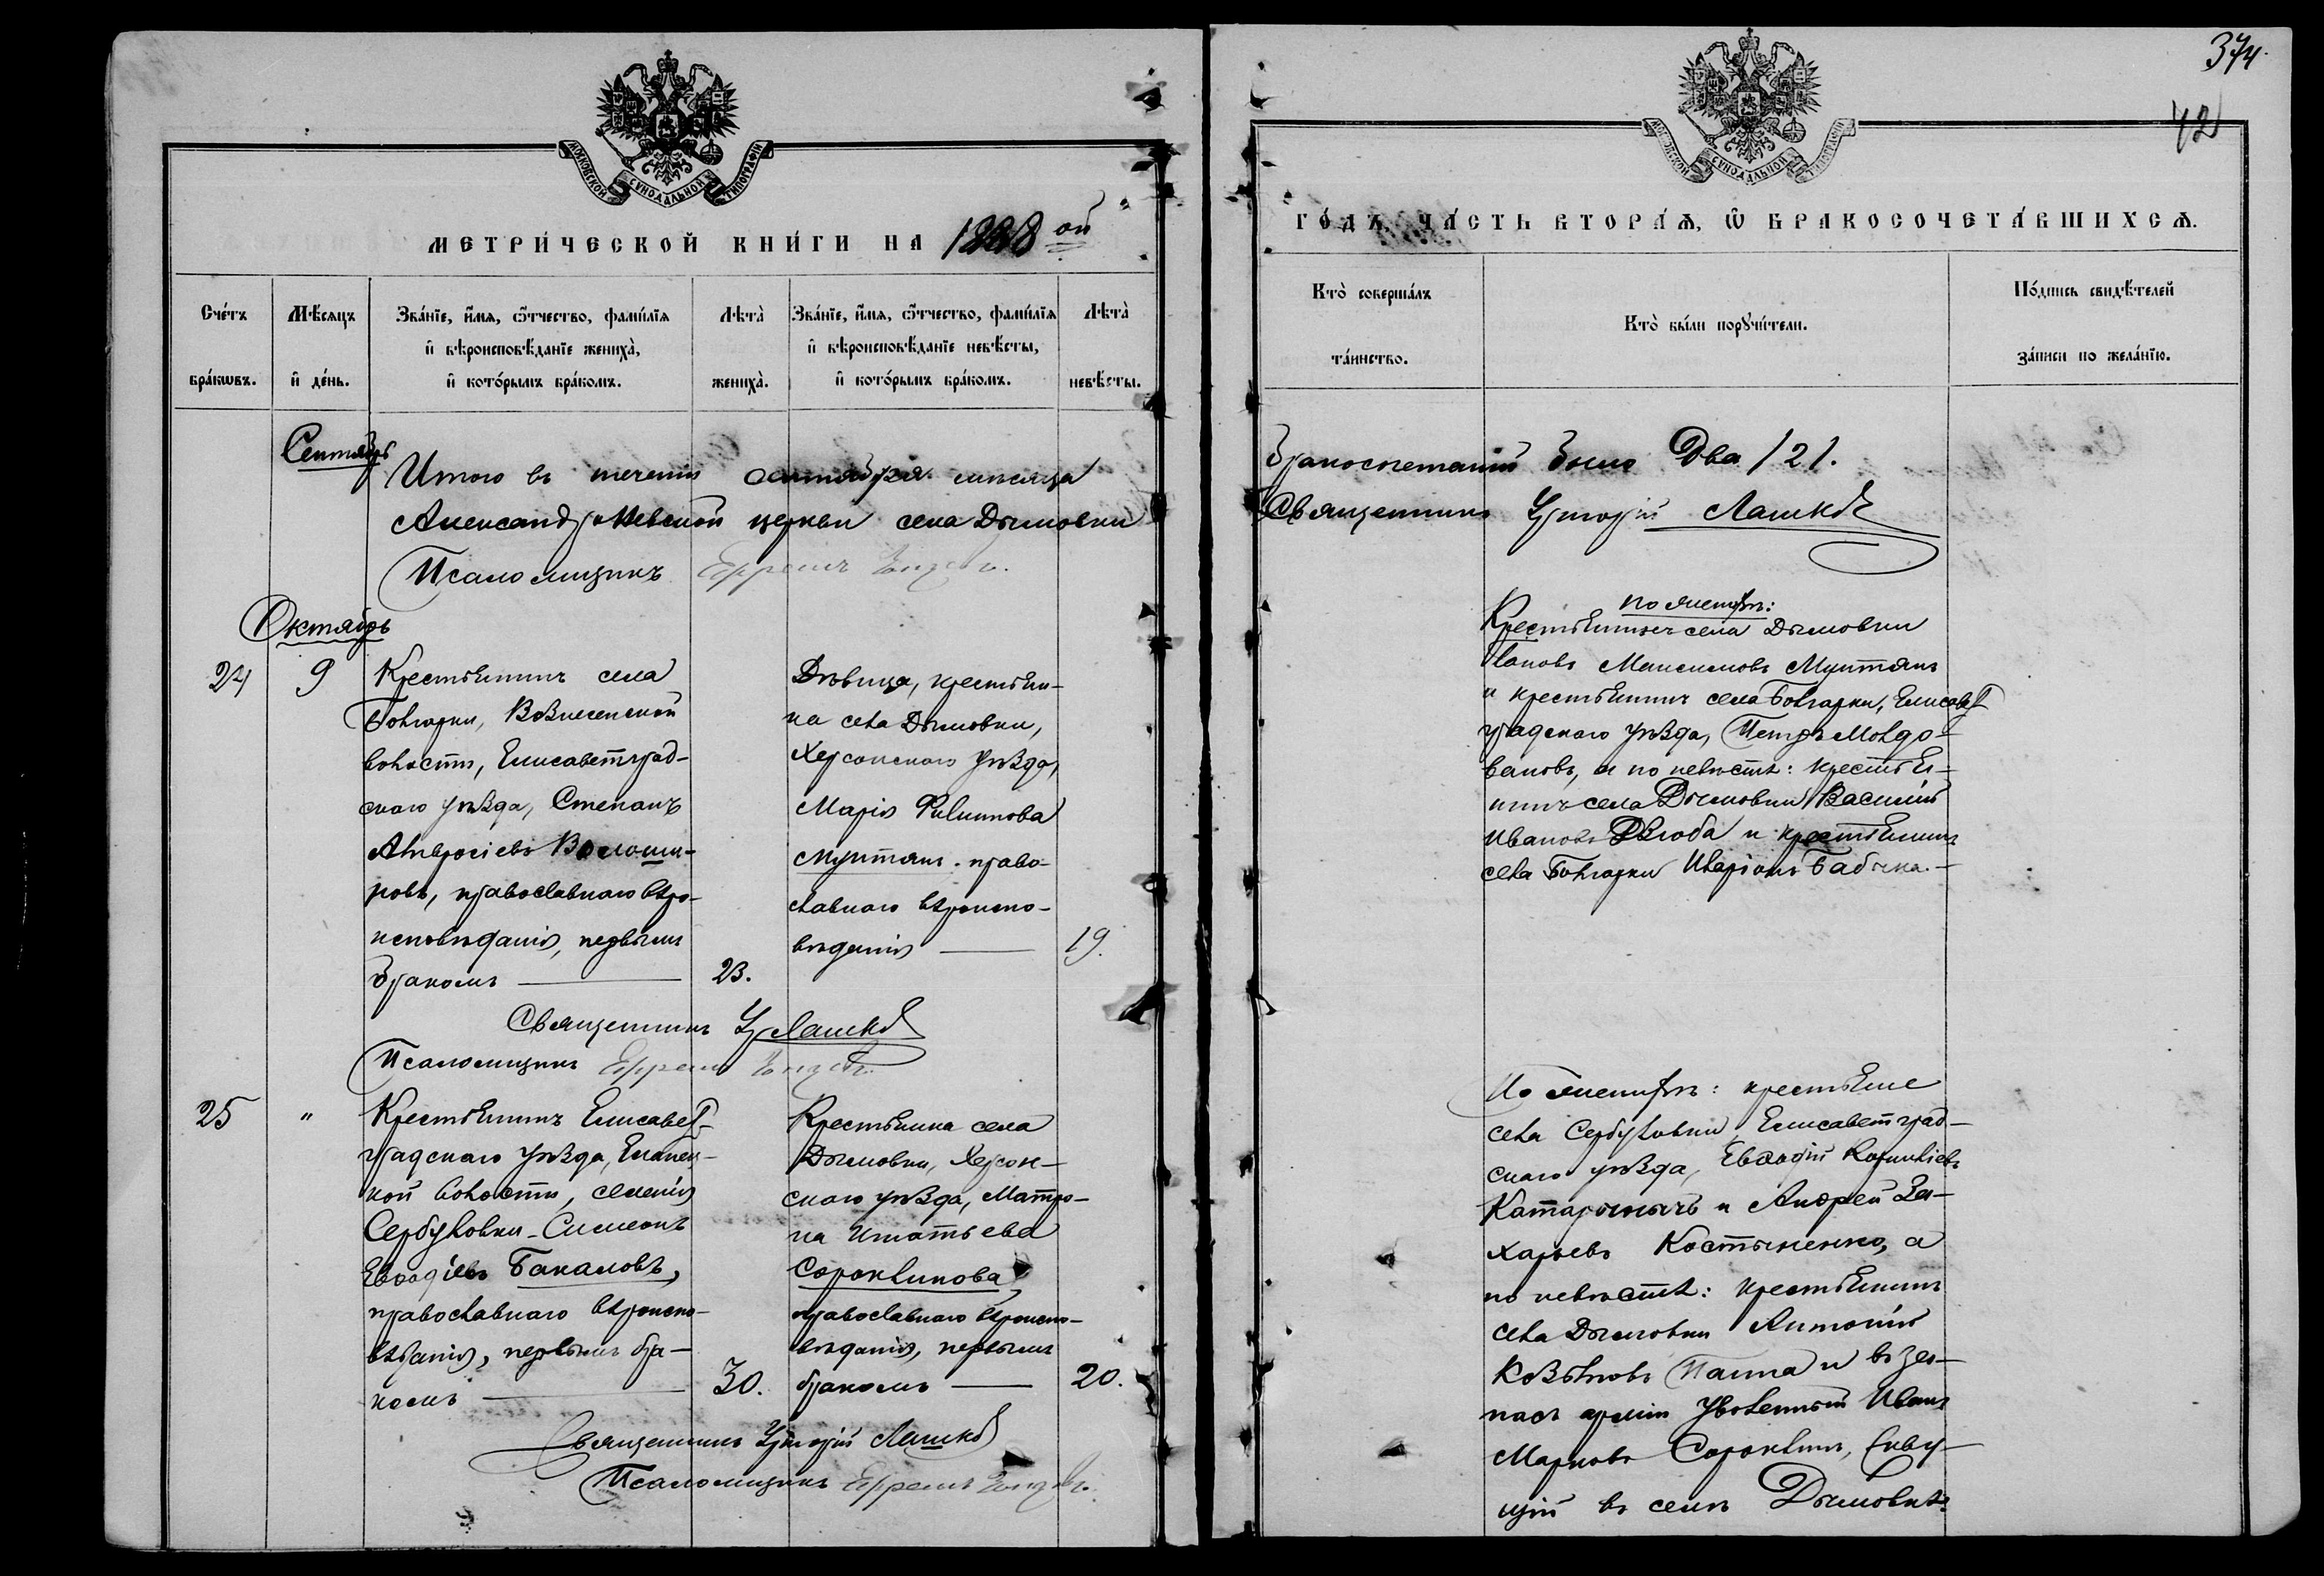 374.
42
МОСКОВСКОЙ СѴНОДАЛЬНОЙ ТИПОГРАФІИ
МОСКОВСКОЙ СѴНОДАЛЬНОЙ ТИПОГРАФІИ
МЕТРИ́ЧЕСКОЙ КНИ́ГИ НА 1888 ой
ГО́ДЪ, ЧА́СТЬ ВТОРА́Ѧ, Ѡ БРАКОСОЧЕТА́ВШИХСѦ.
Сче́тъ бра́кѡвъ.
Мѣ́сяцъ и҆ де́нь.
Зва́нїе, и҆́мѧ, ѻ҆́тчество, фами́лїѧ
и҆ вѣроисповѣ́данїе жениха̀,
и҆ кото́рымъ бра́комъ.
Лѣта̀ жениха̀.
Зва́нїе, и҆́мѧ, ѻ҆́тчество, фами́лїѧ
и҆ вѣроисповѣ́данїе невѣ́сты,
и҆ кото́рымъ бра́комъ.
Лѣта̀ невѣ́сты.
Кто̀ соверша́лъ
та́инство.
Кто̀ бы́ли порꙋчи́тели.
По́дпись свидѣ́телей
за́писи по жела́нїю.
Сентябрь
Итого въ теченіи сентября мѣсяца
бракосочетаній было Два /2/.
Александро Невской церкви села Дымовки
Священникъ Григорій Лашковъ
Псаломщикъ Ефремъ
Октябрь
24
9
Крестьянинъ села
Болгарки, Вознесенской
волости, Елисаветград-
скаго уѣзда, Степанъ
Амвросіевъ Волоши-
новъ, православнаго вѣро-
исповѣданія, первымъ
бракомъ
23.
Дѣвица, крестьян-
ка села Дымовки,
Херсонскаго уѣзда,
Марія Филипова
Мунтянъ. право-
славнаго вѣроиспо-
вѣданія
19.
по женихѣ:
Крестьянинъ села Дымовки
Максимовъ Мунтянъ
и крестьянинъ села Болгарки, Елисавет
градскаго уѣзда, Петръ Молдо-
вановъ, а по невѣстѣ: крестья-
нинъ села Дымовки Василій
Ивановъ Дзюба и крестьянинъ
села Болгарки Иларіонъ Бабычка.
Священникъ Гр Лашковъ
Псаломщикъ Ефремъ
25
"
Крестьянинъ Елисавет-
градскаго уѣзда, Еланец-
кой волости, селенія
Сербуловки Симеонъ
Еводіевъ Бакаловъ,
православнаго вѣроиспо-
вѣданія, первымъ бра-
комъ
30.
Крестьянка села
Дымовки, Херсон-
скаго уѣзда, Матро-
на Игнатьева
Сороклинова,
православнаго вѣроиспо-
вѣданія, первымъ
бракомъ
20.
По женихѣ: крестьяне
села Сербуловки, Елисаветград-
скаго уѣзда, Еводій Корниліевъ
и Андрей За-
харьевъ Костыненко, а
по невѣстѣ: крестьянинъ
села Дымовки Антоній
и въ за-
пасъ арміи уволенный Иванъ
Марковъ Сороклинъ,
щій въ селѣ Дымовкѣ.
Священникъ Григорій Лашковъ
Псаломщикъ Ефремъ